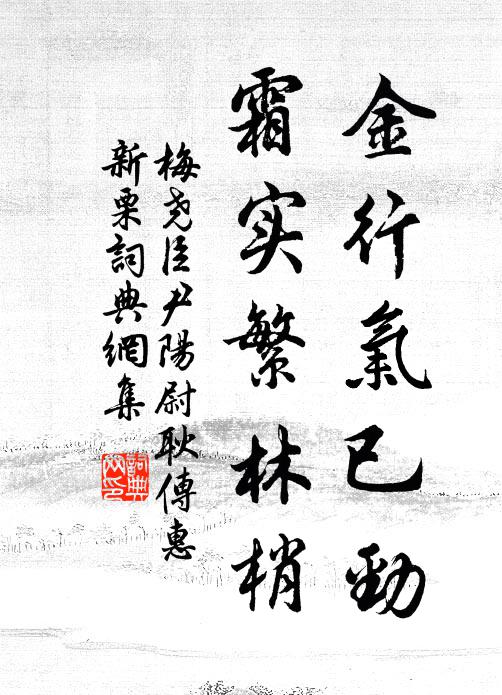 金行氣已勁
霜实繁林梢
梅尧臣尹陽尉耿傅惠
新栗詞典網集
詞典网印